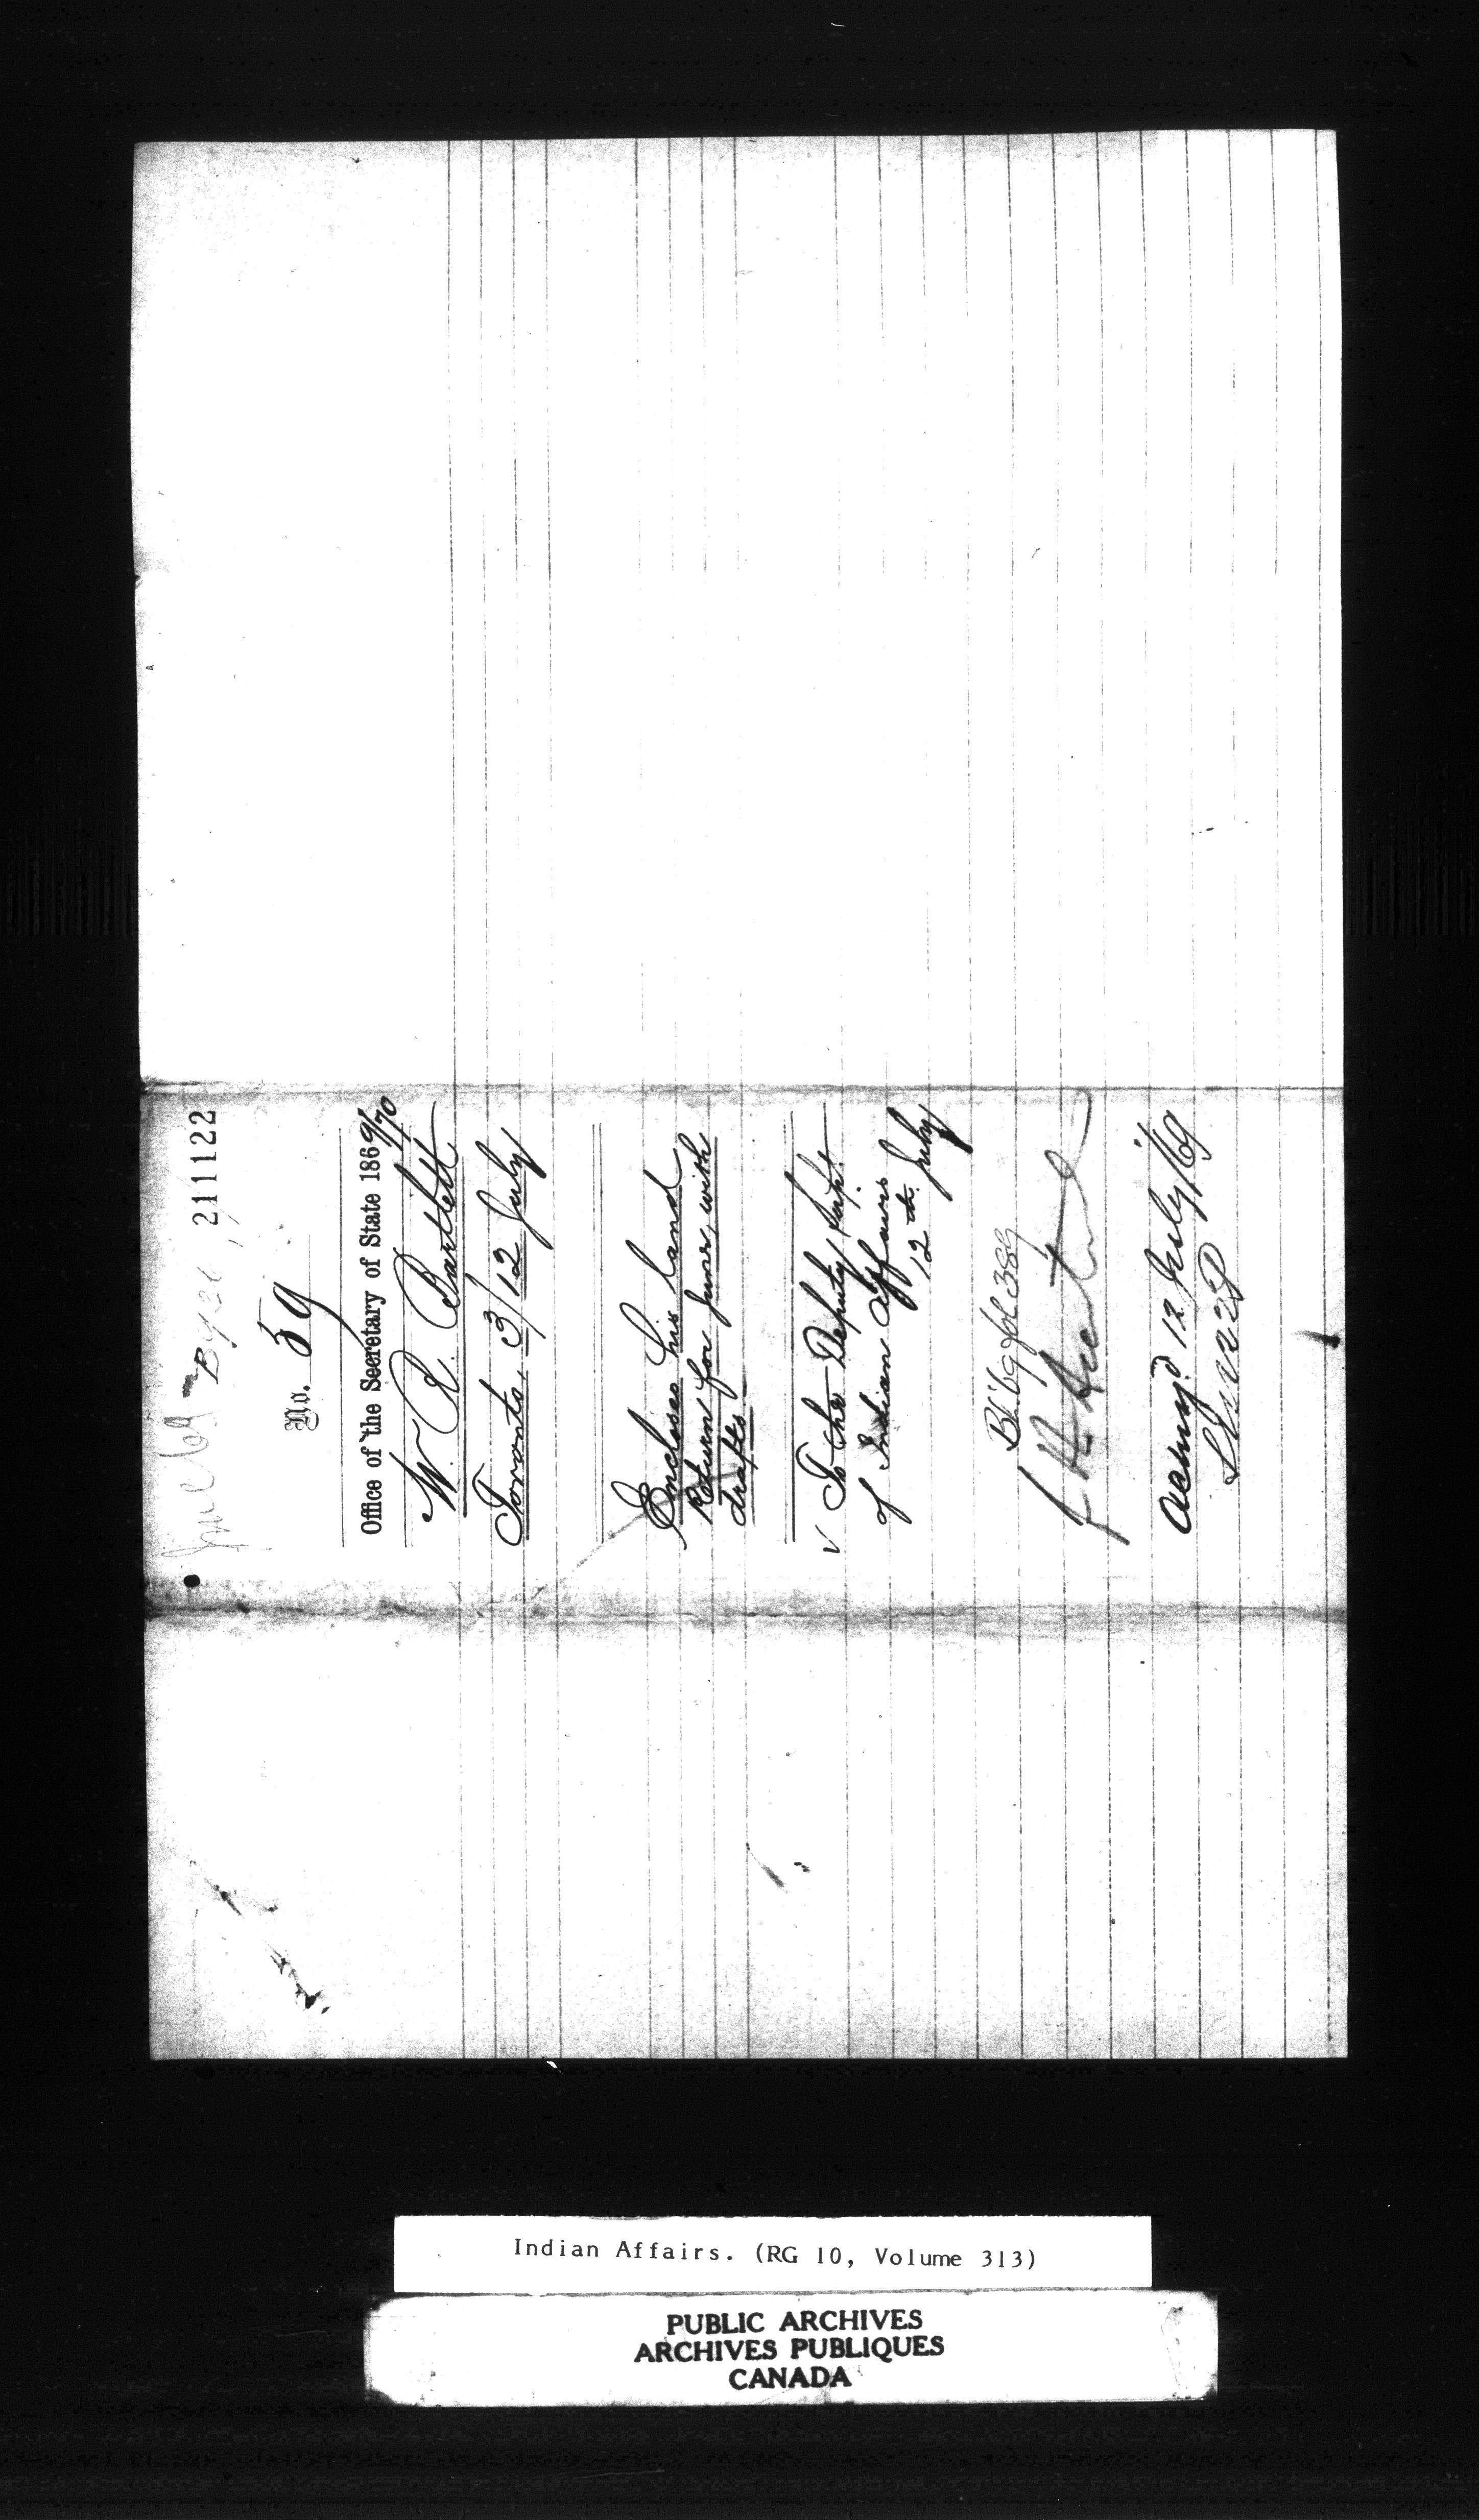 June 69
211122
No. 59
Office of the Secretary of State 1869/70
W. R. Bartlett
Toronto, 3/12 July
Encloses his Land
Return for June, with
drafts.
✓ To the Deputy Supt.
of Indian Affairs
12th July
fol 389
Acknd. 12 July/69
Indian Affairs. (RG 10, Volume 313)
PUBLIC ARCHIVES
ARCHIVES PUBLIQUES
CANADA